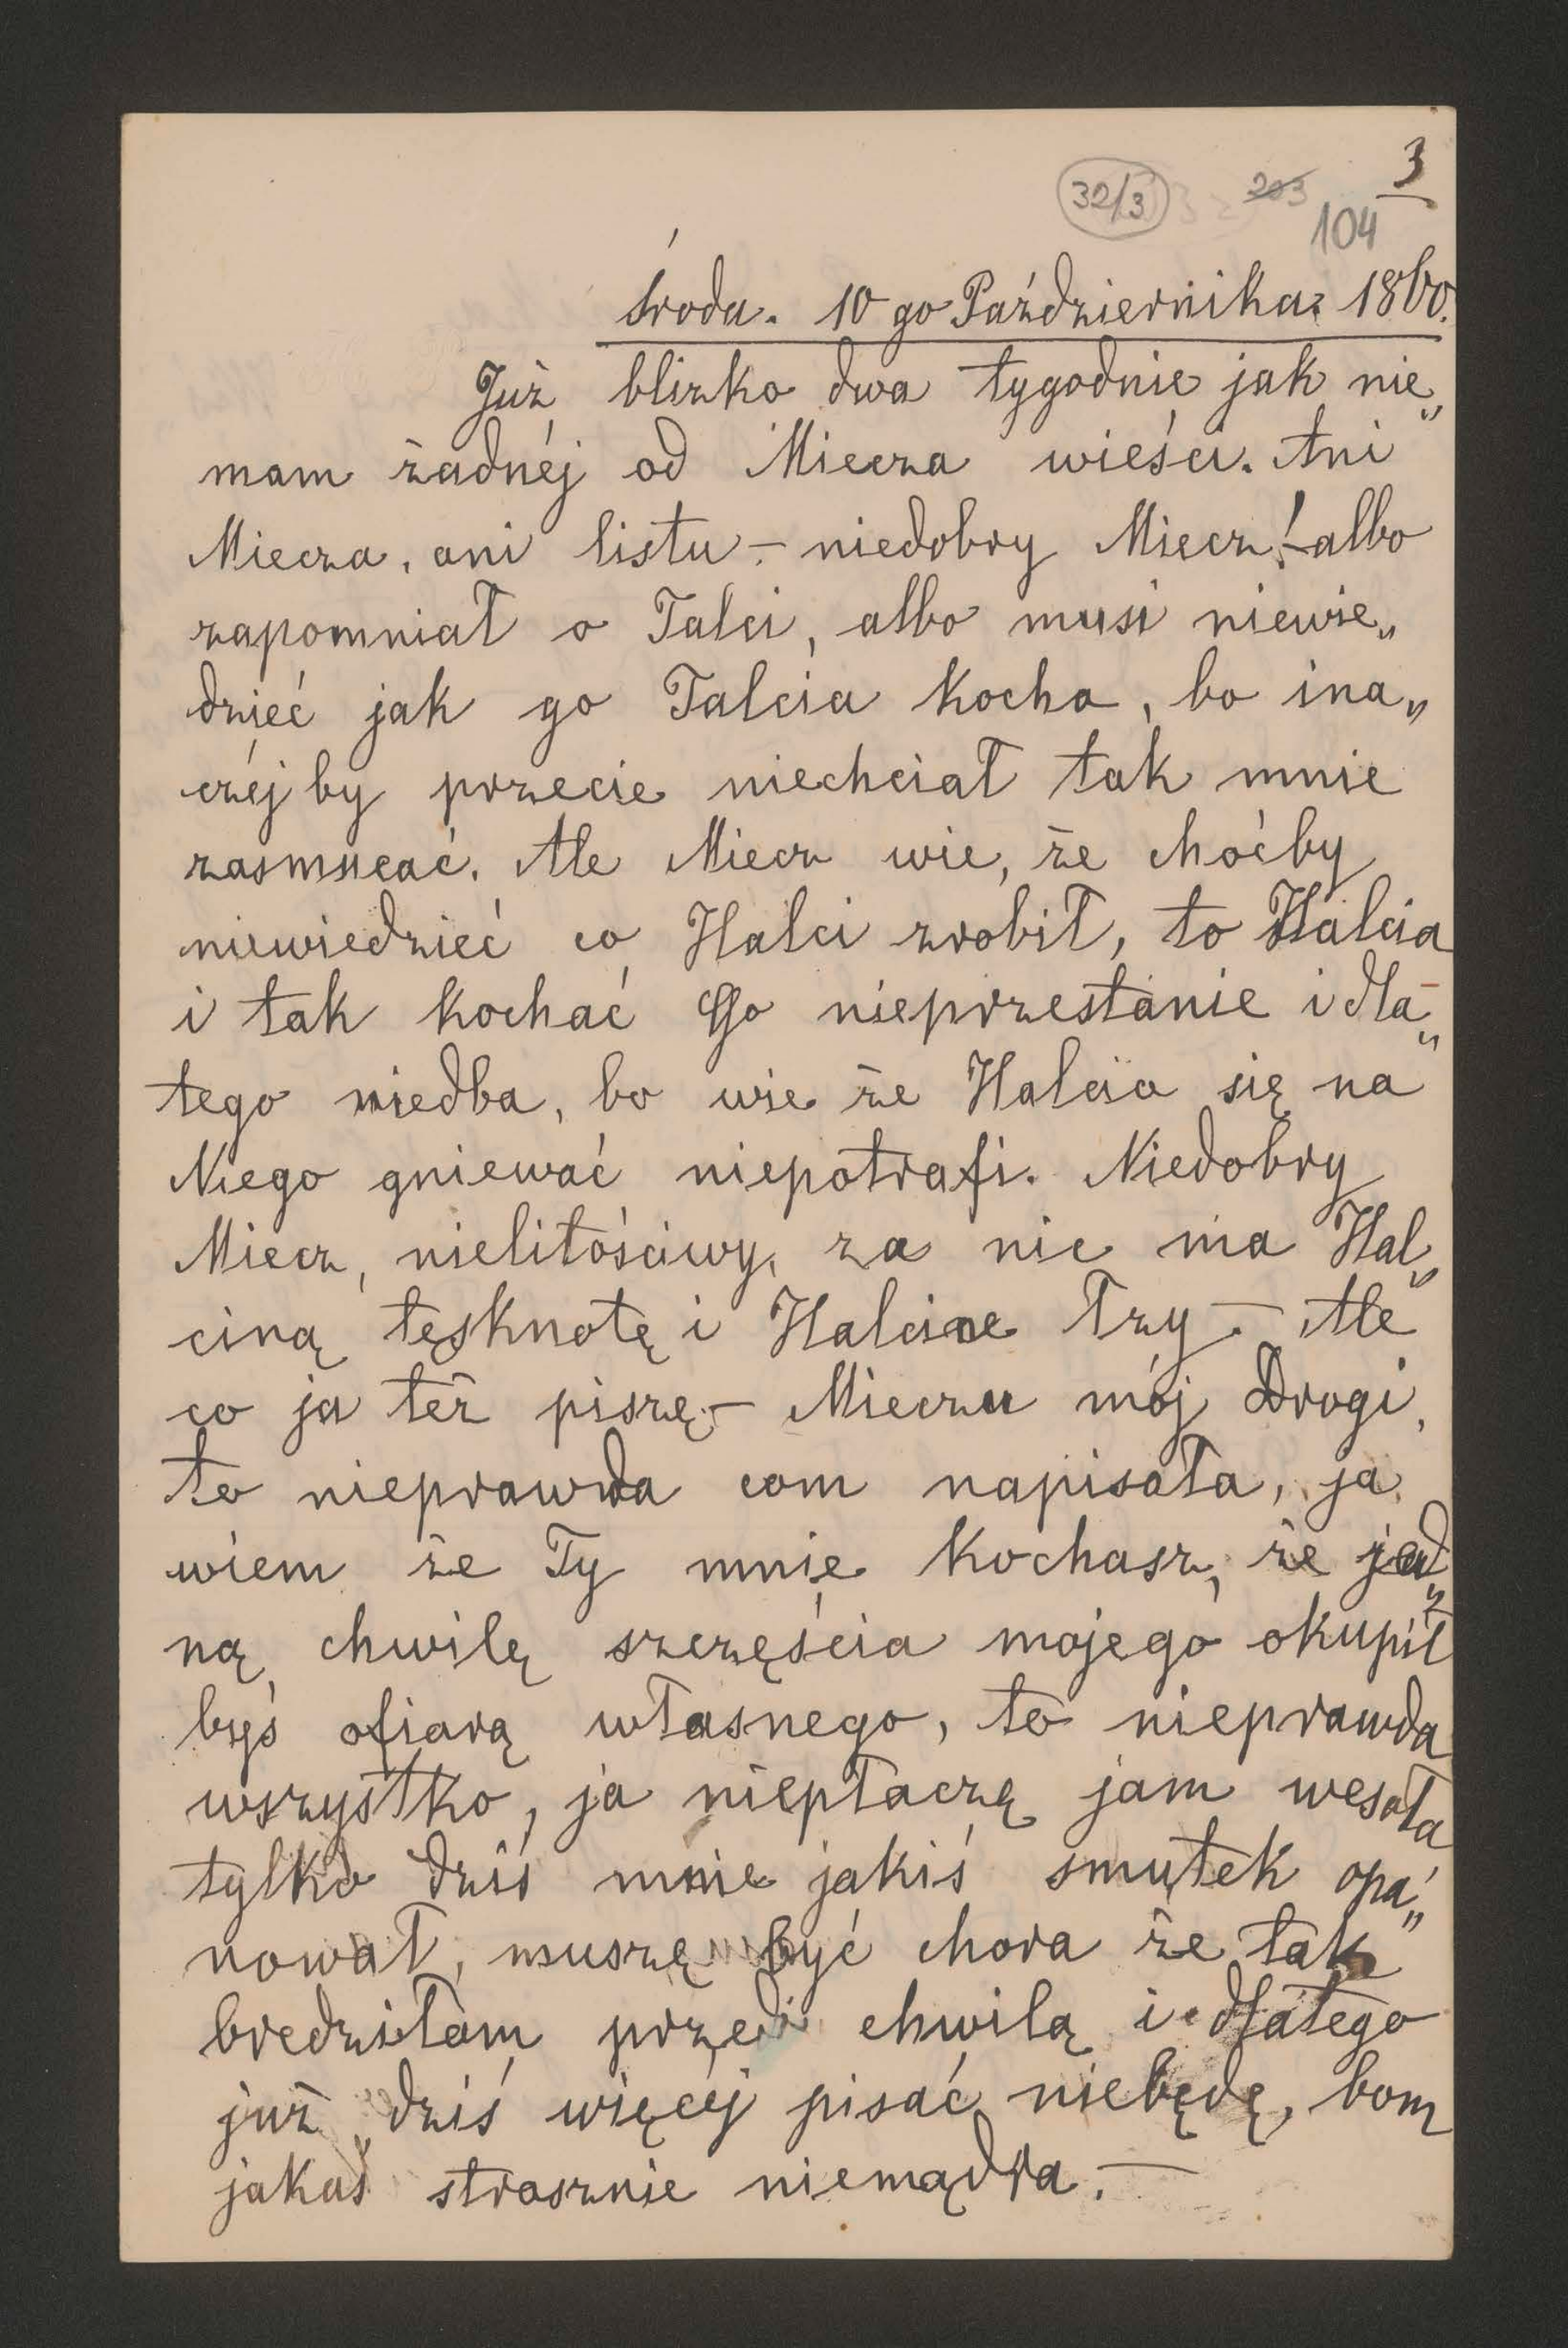 3
32/3 203
104
Środa. 10 go Października 1860.
Już blizko dwa tygodnie jak nie„
mam żadnéj od Miecza wieści. Ani
Miecza, ani listu – niedobry Miecz! – albo
zapomniał o Talci, albo musi niewie„
dzieć jak go Talcia kocha, bo ina„
czéj by przecie niechciał tak mnie
zasmucać. Ale Miecz wie, że choćby
niewiedzieć co Halci zrobił, to Halcia
i tak kochać Go nieprzestanie i dla„
tego niedba, bo wie że Halcia się na
Niego gniewać niepotrafi. Niedobry
Miecz, nielitościwy, za nic ma Hal„
ciną tęsknotę i Halcine łzy. – Ale
co ja też piszę – Mieczu mój Drogi,
to nieprawda com napisała, ja
wiem że Ty mnie kochasz, że jed„
ną chwilę szczęścia mojego okupił
byś ofiarą własnego, to nieprawda
wszystko, ja niepłaczę jam wesoła
tylko dziś mnie jakiś smutek opa„
nował, muszę być chora że tak
bredziłam przed chwilą i dlatego
już dziś więcéj pisać niebędę, bom
jakaś strasznie niemądra. –